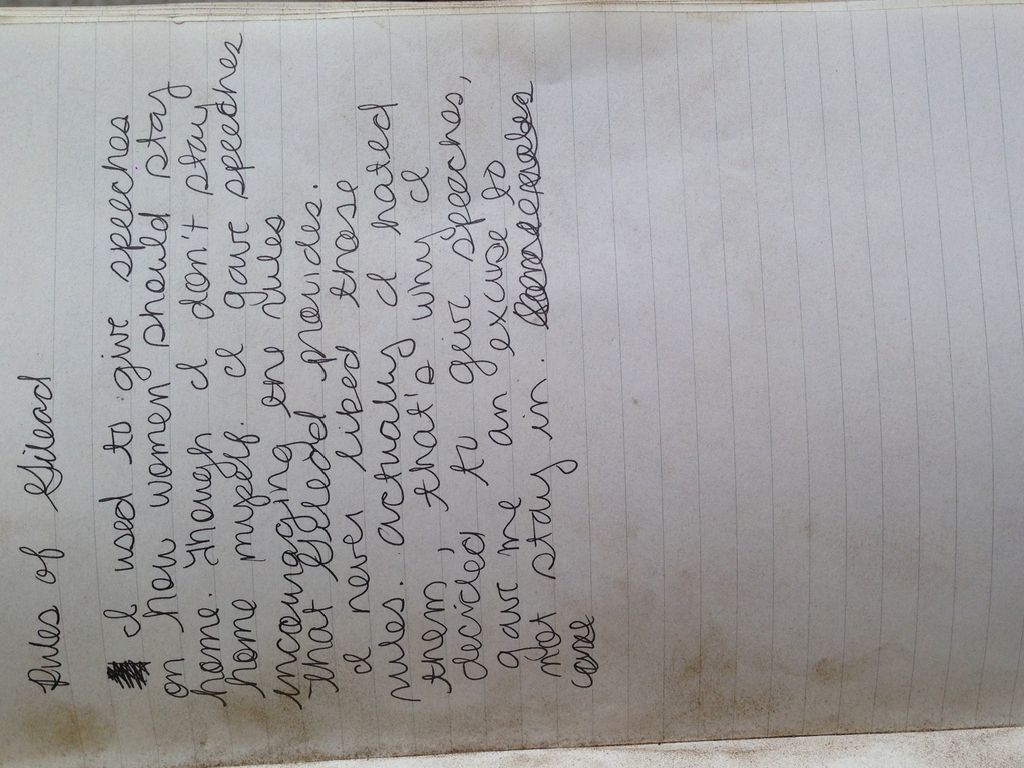 Rules of Gilead
I used to give speeches
on how women should stay
home. Though I don't stay
home myself. I gave speeches
incouraging the rules
that Gilead provides.
I never liked those
rules. actually I hated
them, that's why I
decided to give speeches,
gave me an excuse to
not stay in.